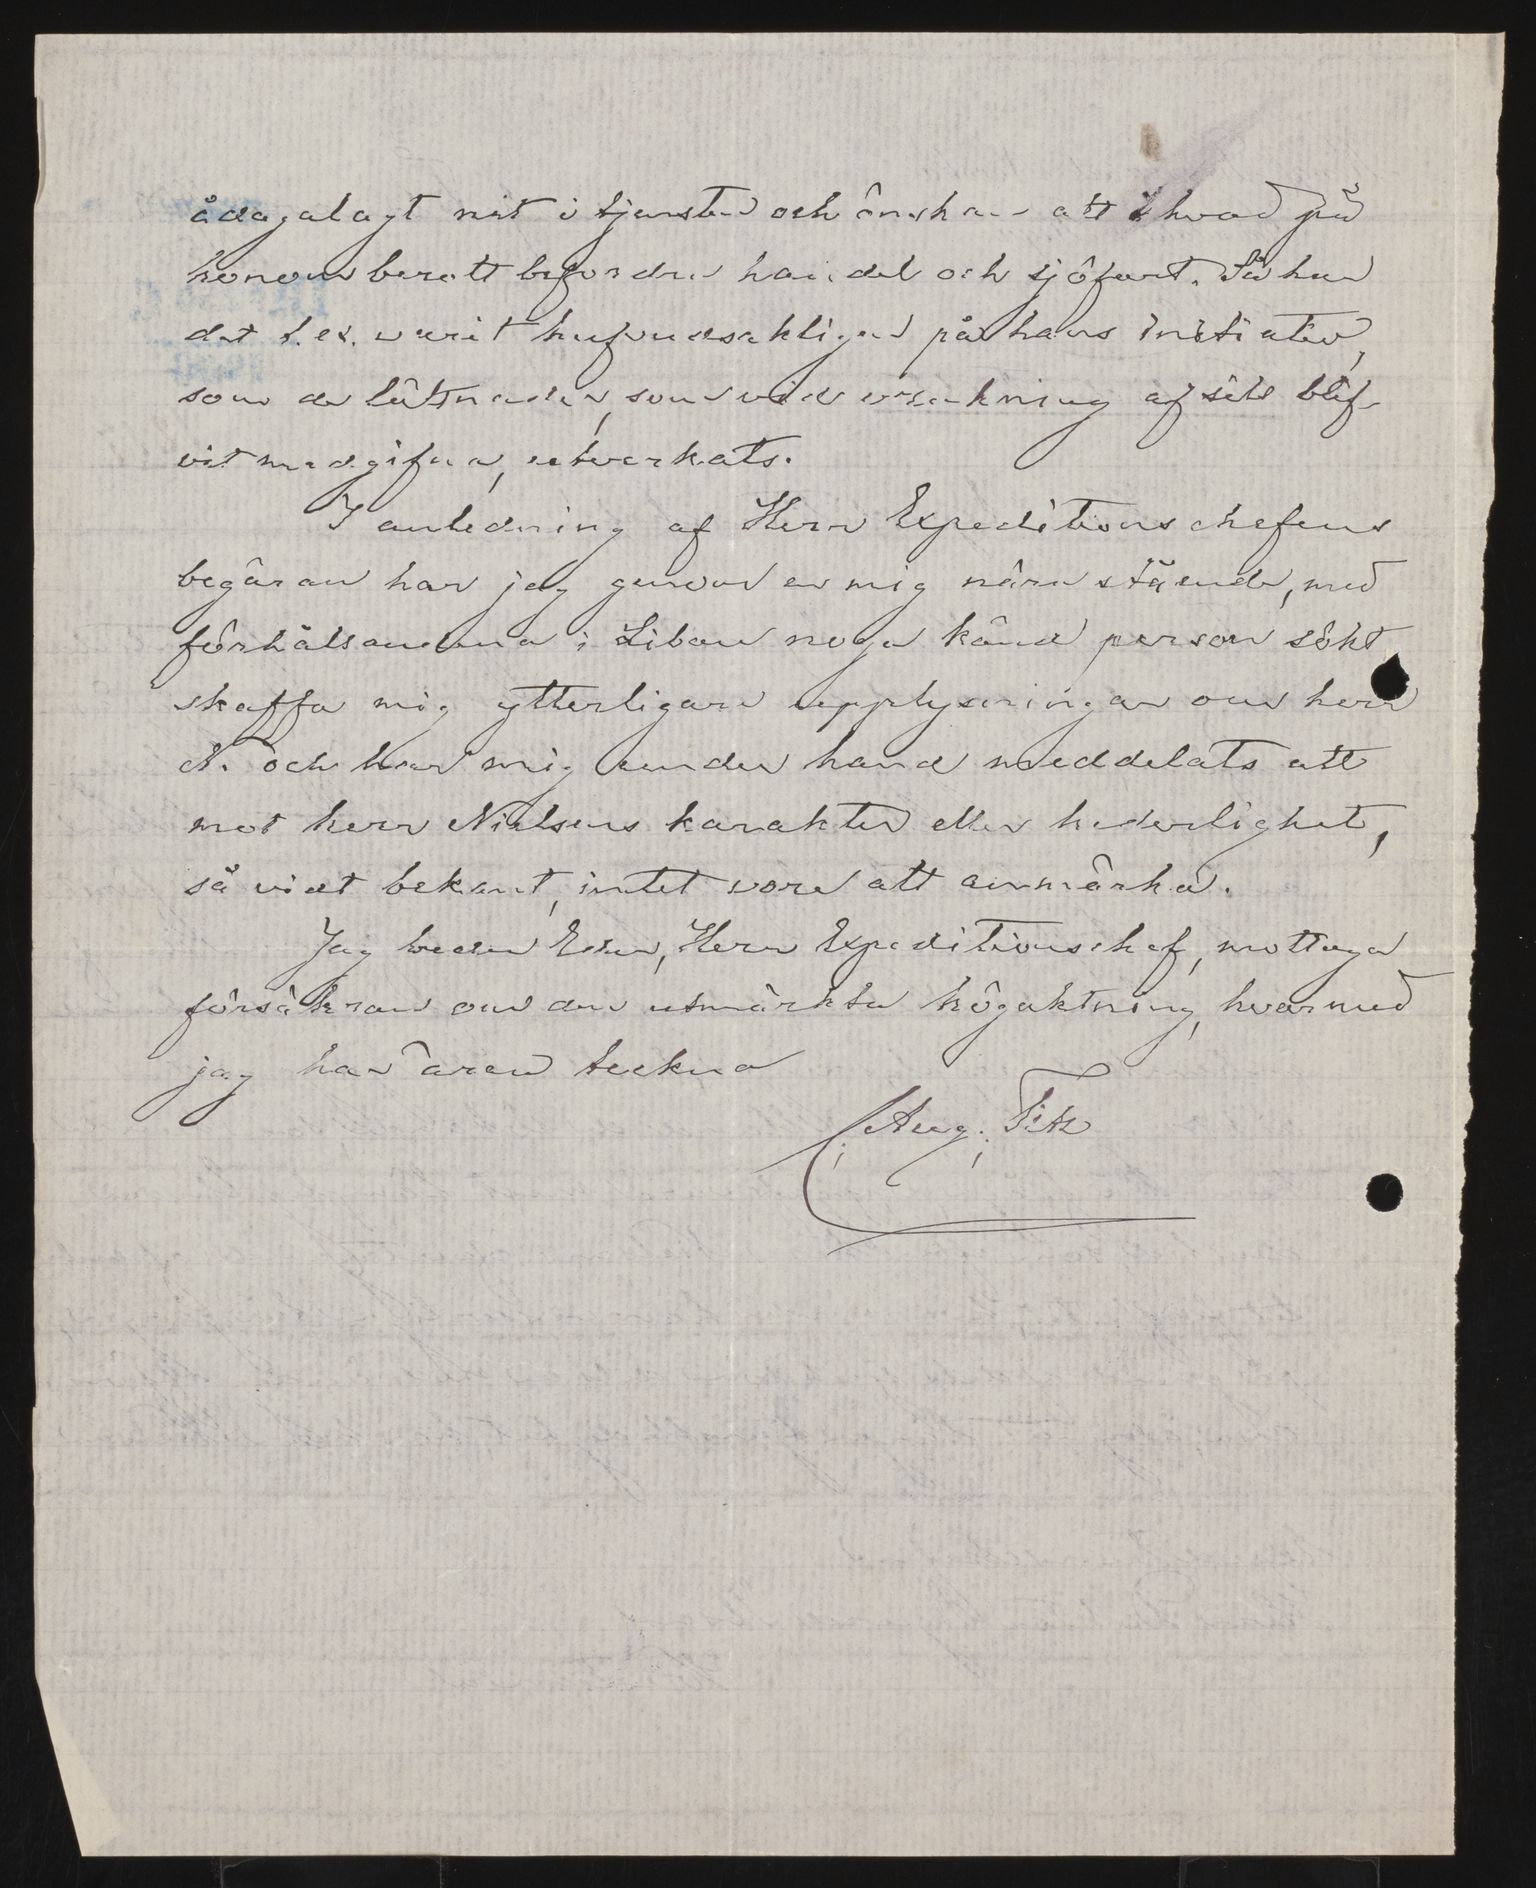 ådagalagt nit i tjensten och önskan att i hvad på
honom berott befordra handel och sjöfart. Så har
det t. ex. varit hufvudsakligen på hans initiativ,
som de lättnader, som vid vrakning af sill blif-
vit medgifna, utverkats.
I anledning af Herr Expeditionschefens
begäran har jag genom en mig nära stående, med
förhållandena i Libau noga känd person sökt
skaffa mig ytterligare upplysningar om herr
N. och har mig under hand meddelats att
mot herr Nielsens karakter eller hederlighet,
så vidt bekant, intet vore att anmärka.
Jag beder Eder, Herr Expeditionschef, mottaga
försäkran om den utmärkta högaktning, hvarmed
jag har äran teckna
Aug.